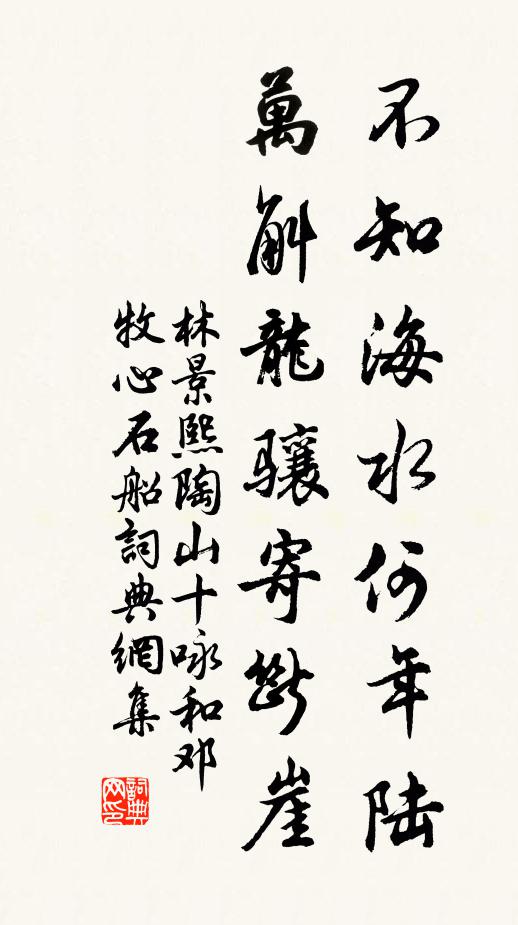 不知海水何年陸
萬斛龍驤寄斷崖
林景熙陶山十咏和邓
牧心石船詞典網集
詞典网印